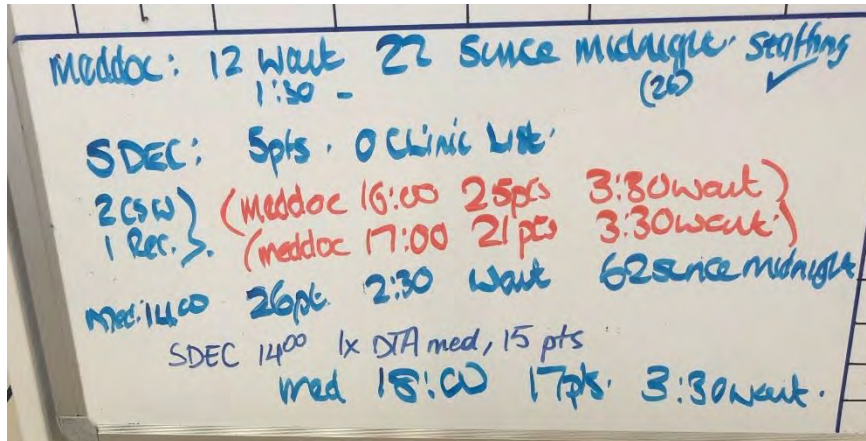 meddoc: 12 wait 22 since midnight. staffing
1:30 - (26) ✓
SDEC: 5pts. 0 Clinic List.
2CSW) (meddoc 16:00 25pts 3:30wait)
1 Rec.). (meddoc 17:00 21pts 3:30wait)
Med: 14.00 26pt. 2:30 wait 62 since midnight
SDEC 14⁰⁰ 1x DTA med, 15 pts
med 18:00 17pts. 3:30wait.